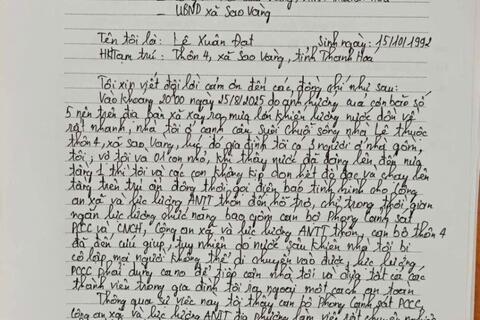 - UBND xã Sao Vàng
Tên tôi là: Lê Xuân Đạt Sinh ngày: 15/10/1992
HKTạm trú: Thôn 4, xã Sao Vàng, tỉnh Thanh Hóa
Tôi xin viết đôi lời cảm ơn đến các đồng chí như sau:
Vào khoảng 20h00 ngày 25/8/2025 do ảnh hưởng của cơn bão số
5 nên trên địa bàn xã xảy ra mưa lớn khiến lượng nước dồn về
rất nhanh, nhà tôi ở cạnh con suối chuối sông nhà Lê thuộc
thôn 4, xã Sao Vàng, lúc đó gia đình tôi có 3 người ở nhà gồm,
tôi, vợ tôi và 01 con nhỏ, khi thấy nước đã dâng lên đến nửa
tầng 1 thì tôi và các con không kịp dọn hết đồ đạc và chạy lên
tầng trên trú ẩn đồng thời gọi điện báo tình hình cho công
an xã và lực lượng ANTT thôn đến hỗ trợ, chỉ trong thời gian
ngắn lực lượng chức năng bao gồm cán bộ Phòng Cảnh sát
PCCC và CNCH, Công an xã và lực lượng ANTT thôn, cán bộ thôn 4
đã đến cứu giúp, tuy nhiên do nước sâu khiến nhà tôi bị
cô lập mọi người không thể di chuyển vào được, lực lượng
PCCC phải dùng ca nô để tiếp cận nhà tôi và đưa tất cả các
thành viên trong gia đình tôi ra ngoài một cách an toàn
Thông qua sự việc này tôi thấy cán bộ Phòng Cảnh sát PCCC,
công an xã và lực lượng ANTT địa phương làm việc rất chuyên nghiệp